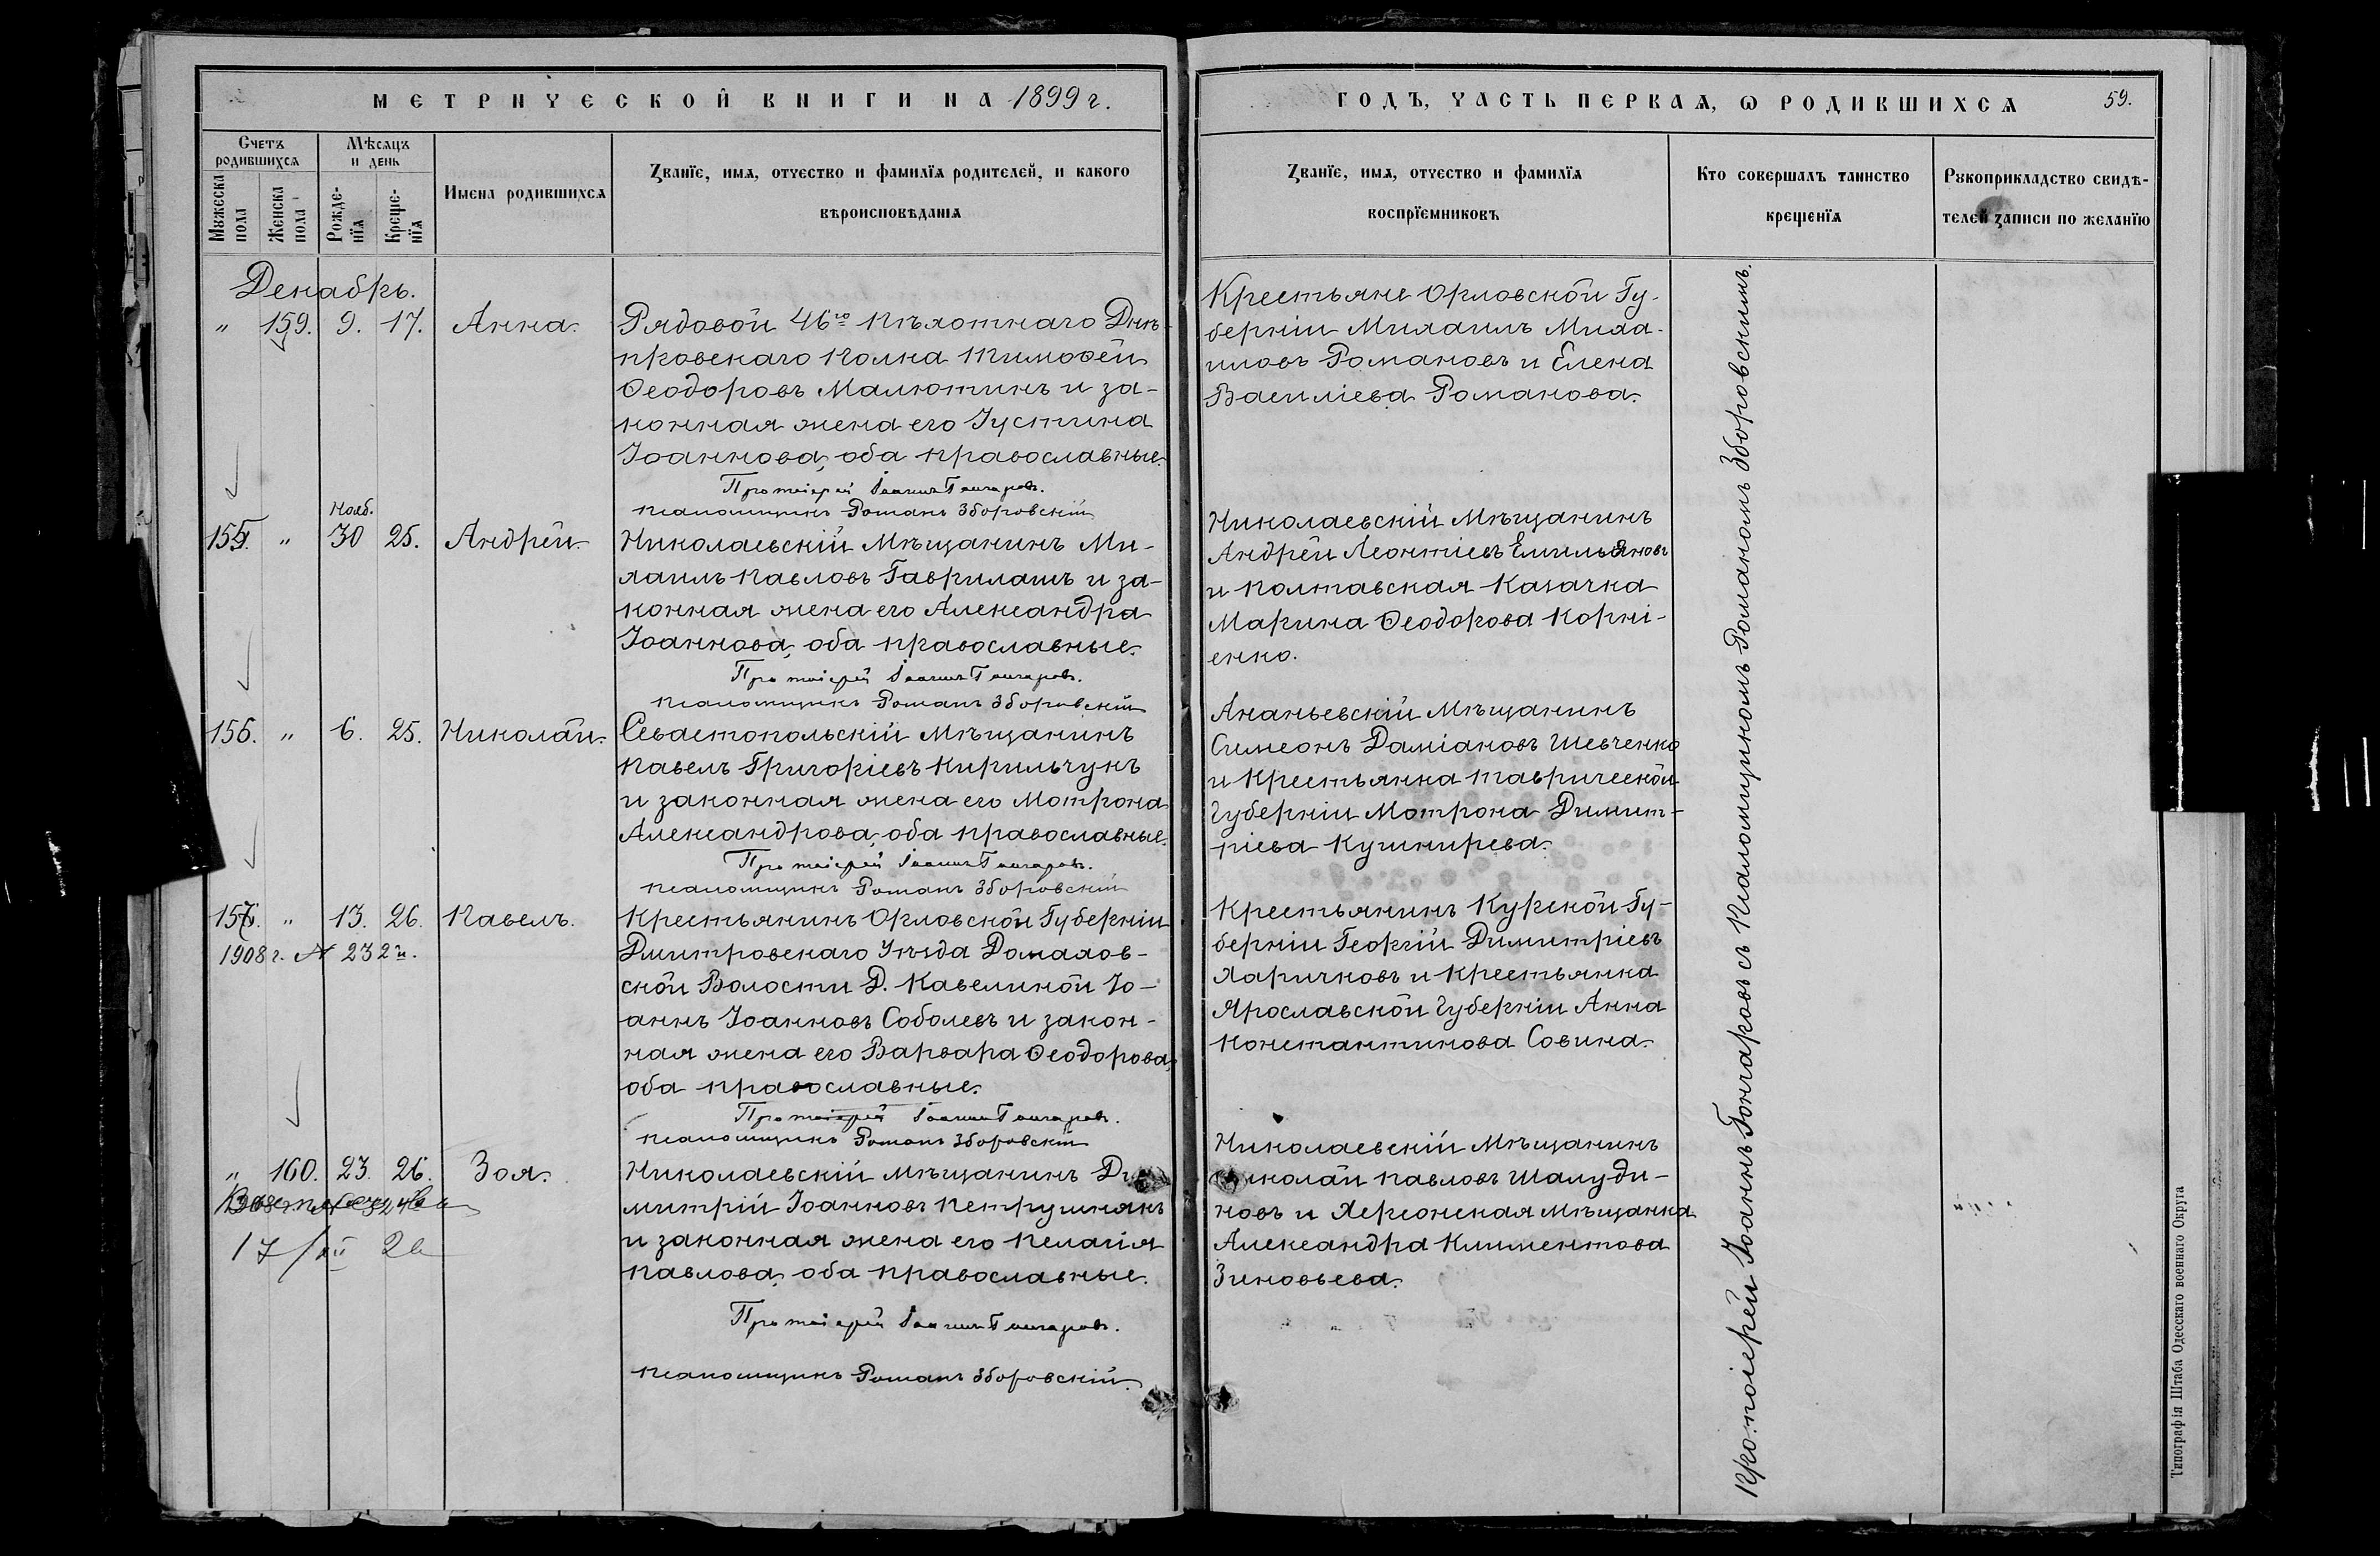 МЕТРИЧЕСКОЙ КНИГИ НА 1899 г.
Счетъ родившихся
Мѣсяцъ и день
Мужеска пола
Женска пола
Рожде-
нія
Креще-
нія
Имена родившихся
Званіе, имя, отчество и фамилія родителей, и какого
вѣроисповѣданія
Декабрь.
" 159. 9. 17. Анна.
Рядовой 46го Пѣхотнаго Днѣ-
провскаго Полка Тимофей
Ѳеодоровъ Малютинъ и за-
конная жена его Іустина
Іоаннова, оба православные.
Протоіерей Іоаннъ Гончаровъ.
Псаломщикъ Романъ Зборовскій
155. " Нояб. 30 25. Андрей.
Николаевскій Мѣщанинъ Ми-
хаилъ Павловъ Гаврилашъ и за-
конная жена его Александра
Іоаннова, оба православные.
Протоіерей Іоаннъ Гончаровъ.
Псаломщикъ Романъ Зборовскій
156. " 6. 25. Николай.
Севастопольскій Мѣщанинъ
Павелъ Григоріевъ Кирильчукъ
и законная жена его Мотрона
Александрова, оба православные.
Протоіерей Іоаннъ Гончаровъ.
Псаломщикъ Романъ Зборовскій
157. " 13. 26. Павелъ.
1908 г. № 232
Крестьянинъ Орловской Губерніи
Дмитровскаго Уѣзда Домахов-
ской Волости Д. Кавелиной Іо-
аннъ Іоанновъ Соболевъ и закон-
ная жена его Варвара Ѳеодорова,
оба православные.
Протоіерей Іоаннъ Гончаровъ.
Псаломщикъ Романъ Зборовскій
" 160. 23. 26. Зоя.
Николаевскій Мѣщанинъ Ди-
митрій Іоанновъ Петрушнякъ
и законная жена его Пелагія
Павлова, оба православные.
Протоіерей Іоаннъ Гончаровъ.
Псаломщикъ Романъ Зборовскій.
ГОДЪ, ЧАСТЬ ПЕРВАЯ, Ѡ РОДИВШИХСЯ 59.
Званіе, имя, отчество и фамилія
воспріемниковъ
Кто совершалъ таинство
крещенія
Рукоприкладство свидѣ-
телей записи по желанію
Крестьяне Орловской Гу-
берніи Михаилъ Миха-
иловъ Романовъ и Елена
Василіева Романова.
Николаевскій Мѣщанинъ
Андрей Леонтіевъ Емильяновъ
и Полтавская Казачка
Марина Ѳеодорова Корні-
енко.
Ананьевскій Мѣщанинъ
Симеонъ Даміановъ Шевченко
и Крестьянка Таврической
Губерніи Мотрона Димит-
ріева Кушнирева.
Крестьянинъ Курской Гу-
берніи Георгій Димитріевъ
Харичковъ и Крестьянка
Ярославской Губерніи Анна
Константинова Совина.
Николаевскій Мѣщанинъ
Николай Павловъ Шалуди-
новъ и Херсонская Мѣщанка
Александра Климентова
Зиновьева.
Протоіерей Іоаннъ Гончаровъ съ Псаломщикомъ Романомъ Зборовскимъ.
Типографія Штаба Одесскаго военнаго Округа